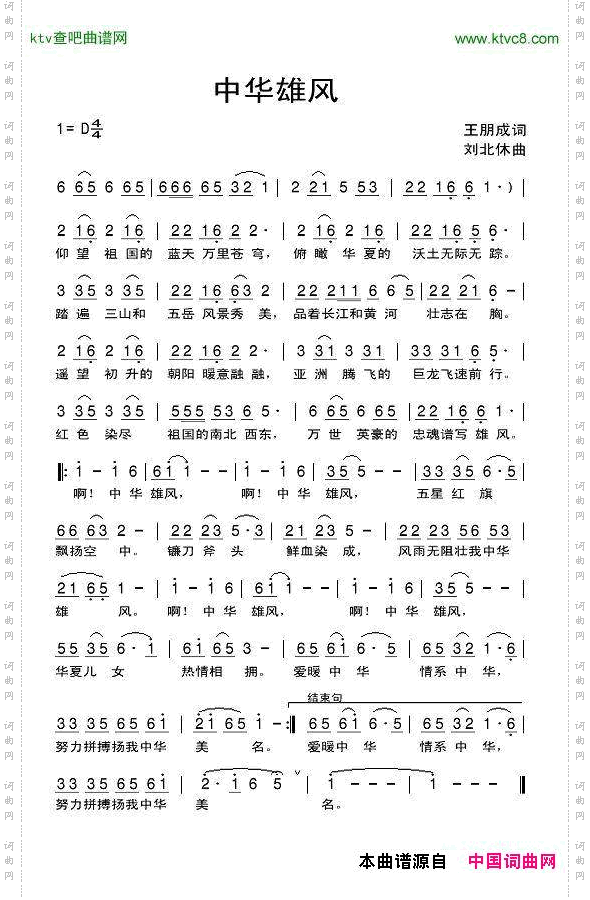 ktv查吧曲谱网 www.ktvc8.com
中华雄风
1= D 4/4 王朋成词
刘北休曲
6 65 6 65 | 666 65 65 32 1 | 2 21 5 53 | 22 16 6 1· )
2 16 2 16 | 22 22 16 2 2· | 2 16 2 16 | 22 22 16 5· |
仰 望 祖 国的 蓝天 万里苍 穹， 俯 瞰 华 夏的 沃土无际无 踪。
3 35 3 35 | 22 22 16 63 2 | 22 211 6 6 5 | 22 21 6 - |
踏 遍 三山和 五岳 风景秀 美， 品着长江和黄 河 壮志在 胸。
2 16 2 16 | 22 22 16 2 2· | 3 331 3 331 | 33 31 65 5· |
遥 望 初 升的 朝阳 暖意融融， 亚 洲 腾 飞的 巨龙飞速前 行。
3 35 3 35 | 555 53 65 5· | 6 65 6 65 | 22 16 6 1· |
红 色 染尽 祖国的南北 西东， 万 世 英豪的 忠魂谱写 雄 风。
1 - 1 6 | 61 1 - | 1 - 1 6 | 35 5 - | 33 35 6·5 |
啊！ 中 华 雄风， 啊！ 中 华 雄风， 五星 红 旗
66 63 2 - | 22 23 5·3 | 21 23 5 - | 22 23 56 53 |
飘扬空 中。 镰刀 斧 头 鲜血染 成， 风雨无阻壮我中华
21 65 1 - | 1 - 1 6 | 61 1 - | 1 - 1 6 | 35 5 - |
雄 风。 啊！ 中 华 雄风， 啊！ 中 华 雄风，
55 35 6·1 | 61 65 3 - | 65 35 6·5 | 65 32 1 - |
华夏儿 女 热情相 拥。 爱暖 中 华 情系 中 华，
结束句
33 35 65 61 | 21 65 1 - :| 65 61 6·5 | 65 32 1·6 |
努力拼搏扬我中华 美 名。 爱暖中 华 情系 中 华，
33 35 65 61 | 2· 1 6 5 | 1 - - - | 1 - - - |
努力拼搏扬我中华 美 名。
本曲谱源自 中国词曲网